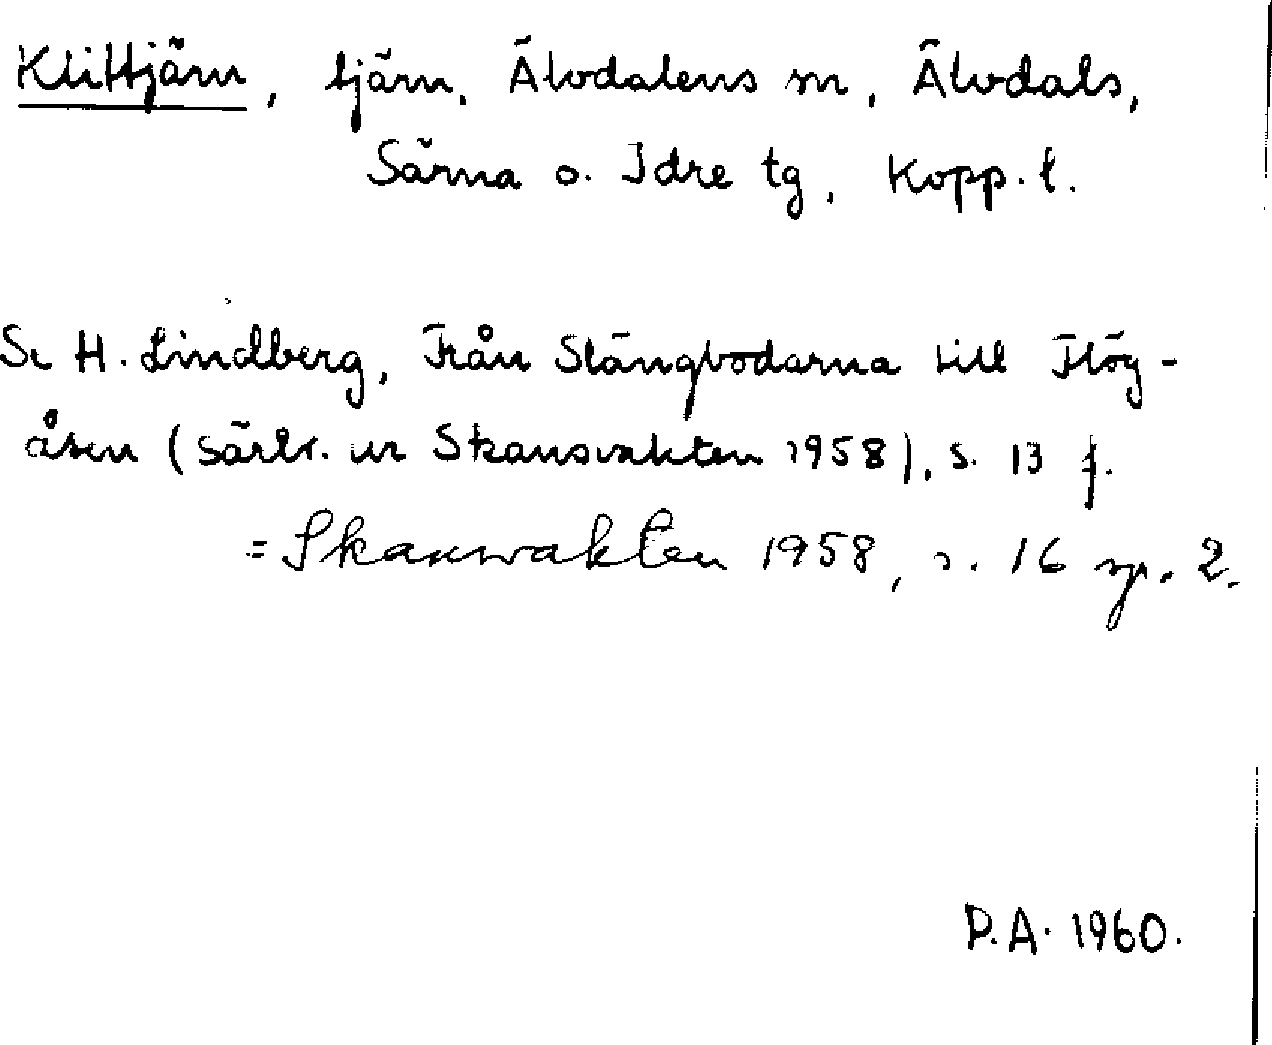 Klittjärn, tjärn, Älvdalens sn, Älvdals,
Särna o. Idre tg, Kopp. l.
Se H. Lindberg, Från Stängbodarna till Flög-
åsen (särtr. ur Skansvakten 1958), s. 13 f.
= Skansvakten 1958, s. 16 sp. 2.
P.A. 1960.